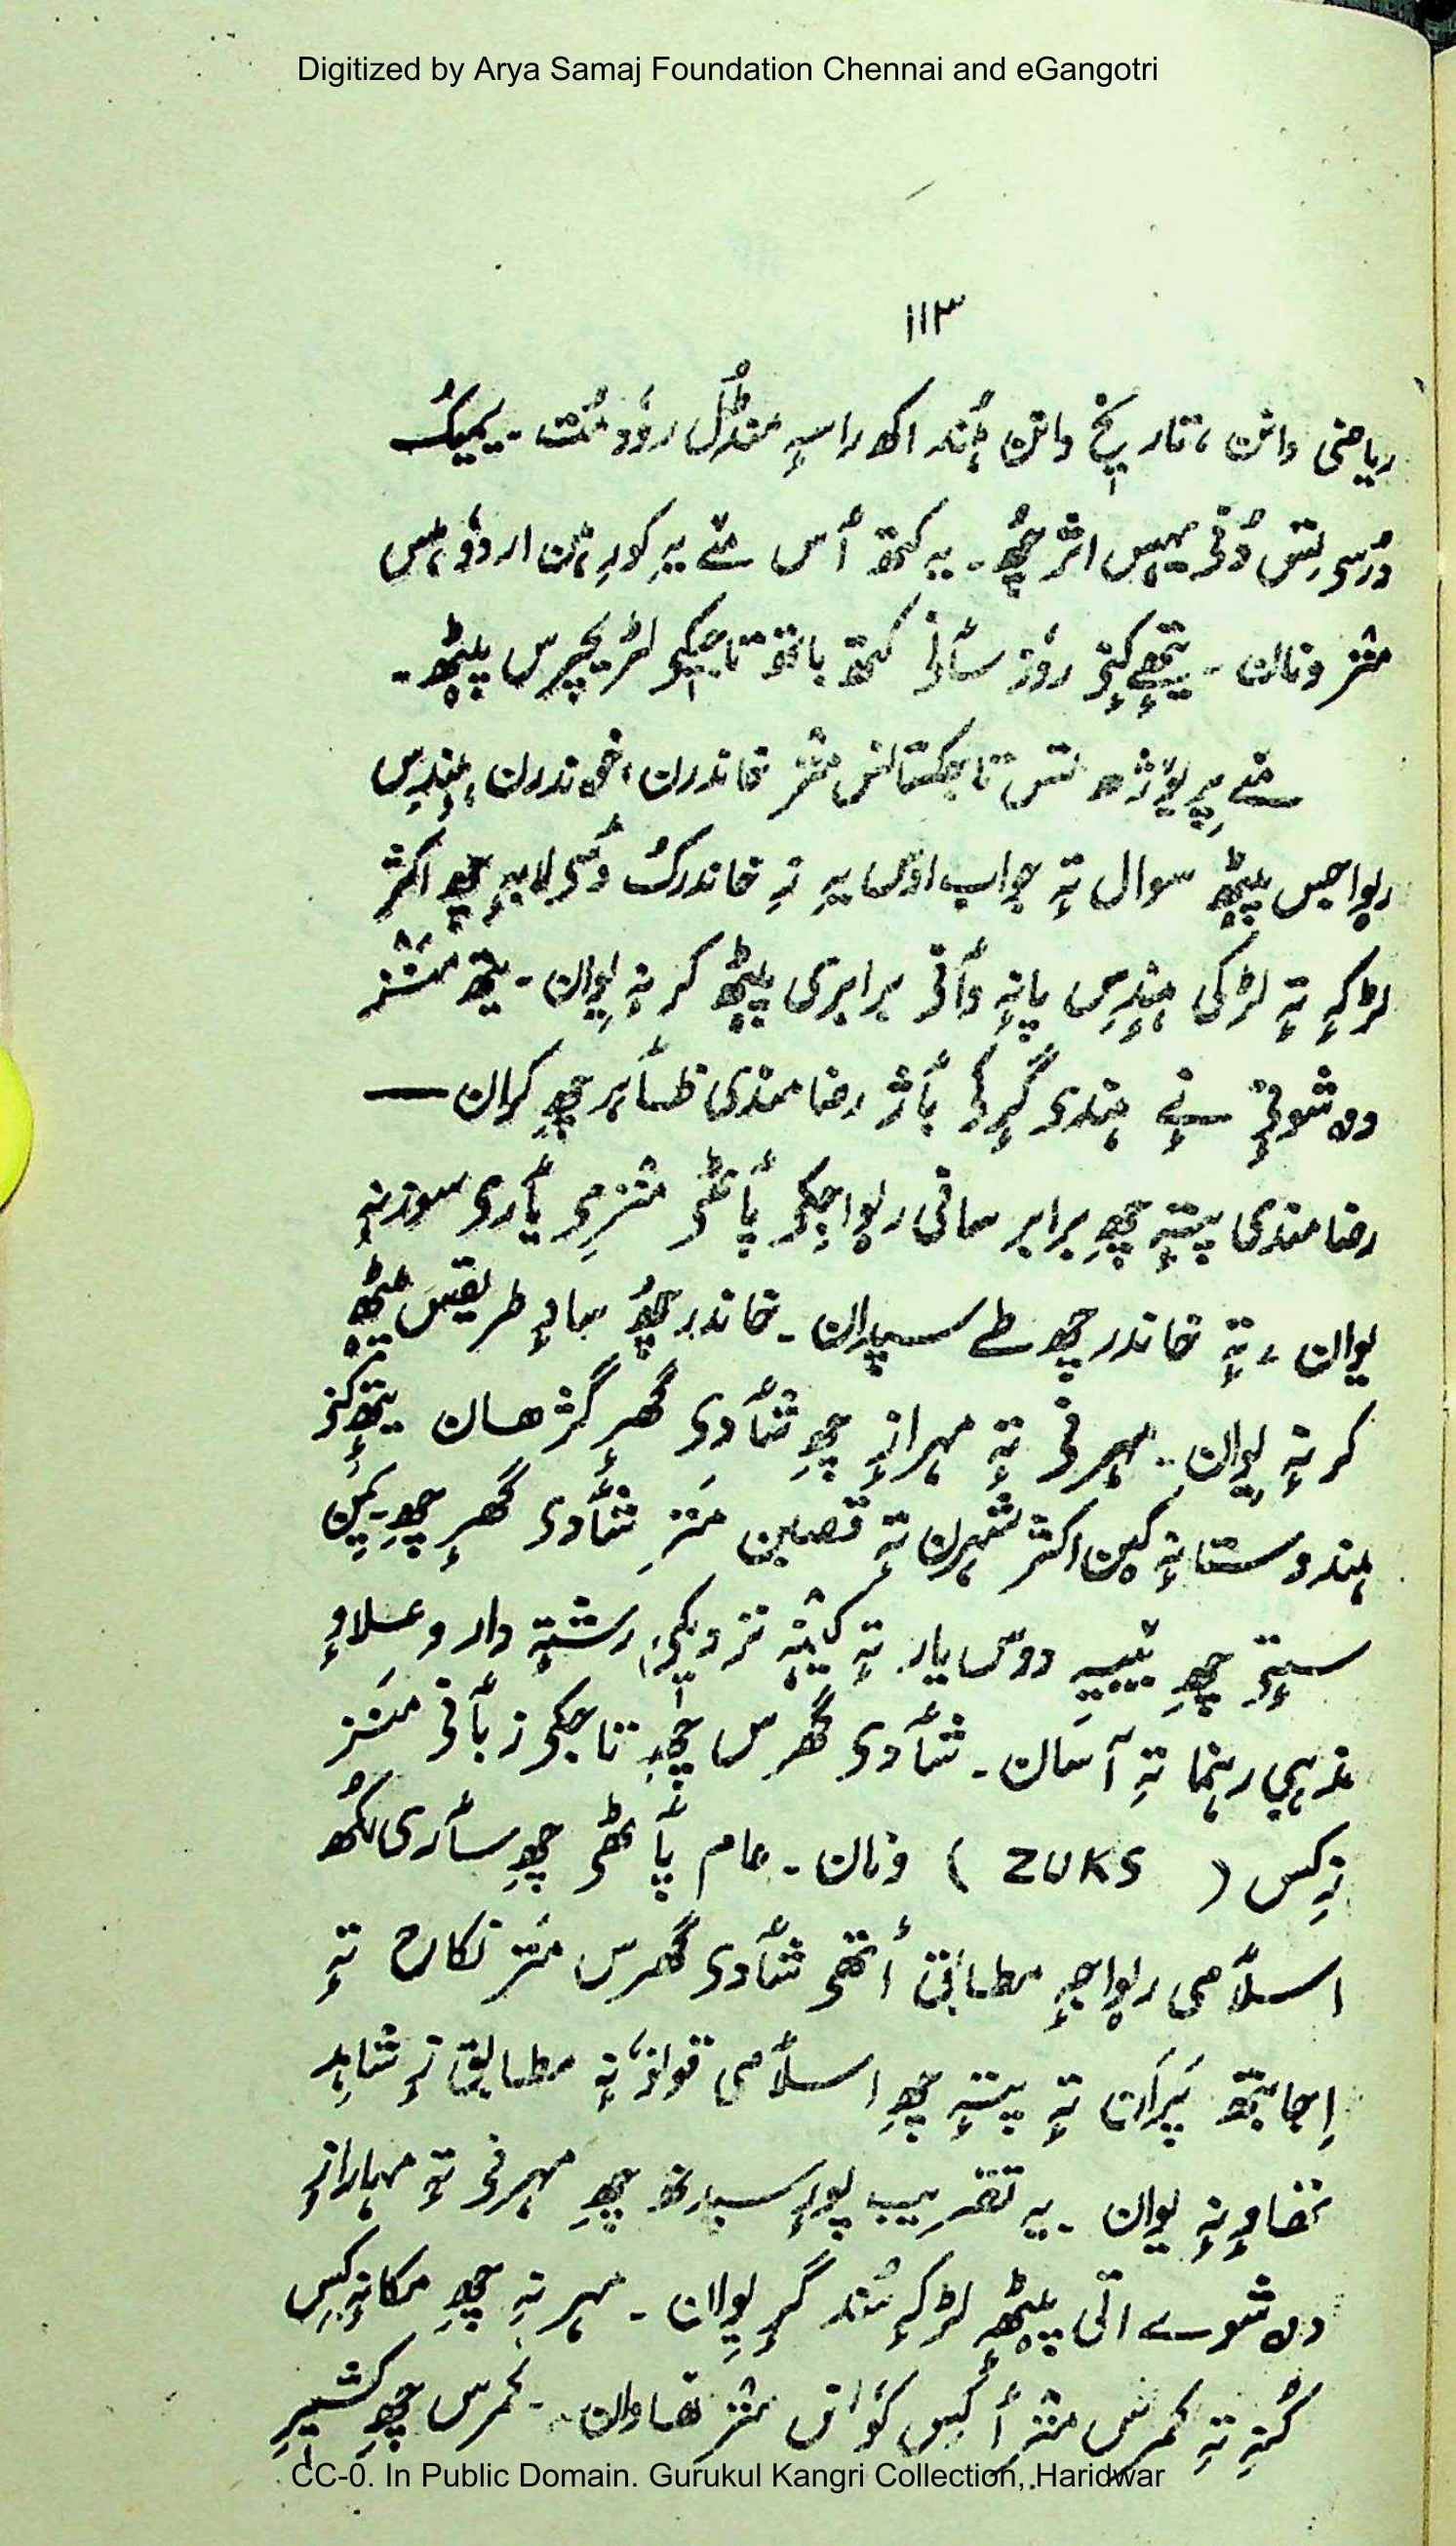 Digitized by Arya Samaj Foundation Chennai and eGangotri
۱۱۳
ریاضی دانن، تاریخ دانن ہُند اکھ راسہٕ منڈُل روٗدمُت۔ یمیکُ
دُسی تس اثر چھُ۔ یہ کتھ أس مےٚ یہِ کورِ ہُن اردوٗ ہس
منز ونان۔ روٗز سأنی کتھ باتھ تاجیکی لٹریچرس پیٹھ۔
مےٚ پرٛوٚژھ تس تاجکستانس منز خاندرن، خاندرن ہندِس
رواجس پیٹھ سوال تہٕ جواب اوس یہِ زِ خاندرک چھِ اکثر
لڑکہٕ تہٕ لڑکی ہندِس پانہٕ وأنی برابری پیٹھ کرنہٕ یوان۔ یتھ منز
دۄشوٕنی ہندی گرِکی بأژ رضامندی ظأہر چھِ کران —
رضامندی پتہٕ چھِ برابر سانی رواجکی پأٹھی منزمی یأری سوزنہٕ
یوان، تہٕ خاندر چھُ طے سپدان۔ خاندر چھُ سادہٕ طریقس پیٹھ
کرنہٕ یوان۔ مہرنی تہٕ مہرازٕ چھِ شأدی گھرٕ گژھان یتھٕ کنی
ہندوستانہٕ کین اکثر شہرن تہٕ قصبن منز شأدی گھرٕ چھِ۔ یمن
ستی چھِ دوس یار تہٕ کینہہ نزدیکی رشتہٕ دار وعلاوٕ
مذہبی رہنما تہِ آسان۔ شأدی گھرس چھِ تاجکی زبأنی منز
زکس (ZUKS) ونان۔ عام پأٹھی چھِ سأری لُکھ
اسلأمی رواجہٕ مطأبق أتھی شأدی گھرس منز نکاح تہٕ
اِجابتھ پَران تہٕ پتہٕ چھِ اسلأمی قونوٗنہٕ مطابق زٕ شاہد
تھاونہٕ یوان۔ یہ تقریب پورٕ سپدتھ چھِ مہرنی تہٕ مہارازٕ
دۄشوے اتی پیٹھٕ لڑکہٕ سُند گرٕ یوان۔ مہرنہِ چھِ مکانہٕ کِس
کُنہِ تہِ کمرس منز أکس کوٗنس منز تھاوان۔ کمرس چھِ کشیرِ
CC-0. In Public Domain. Gurukul Kangri Collection, Haridwar